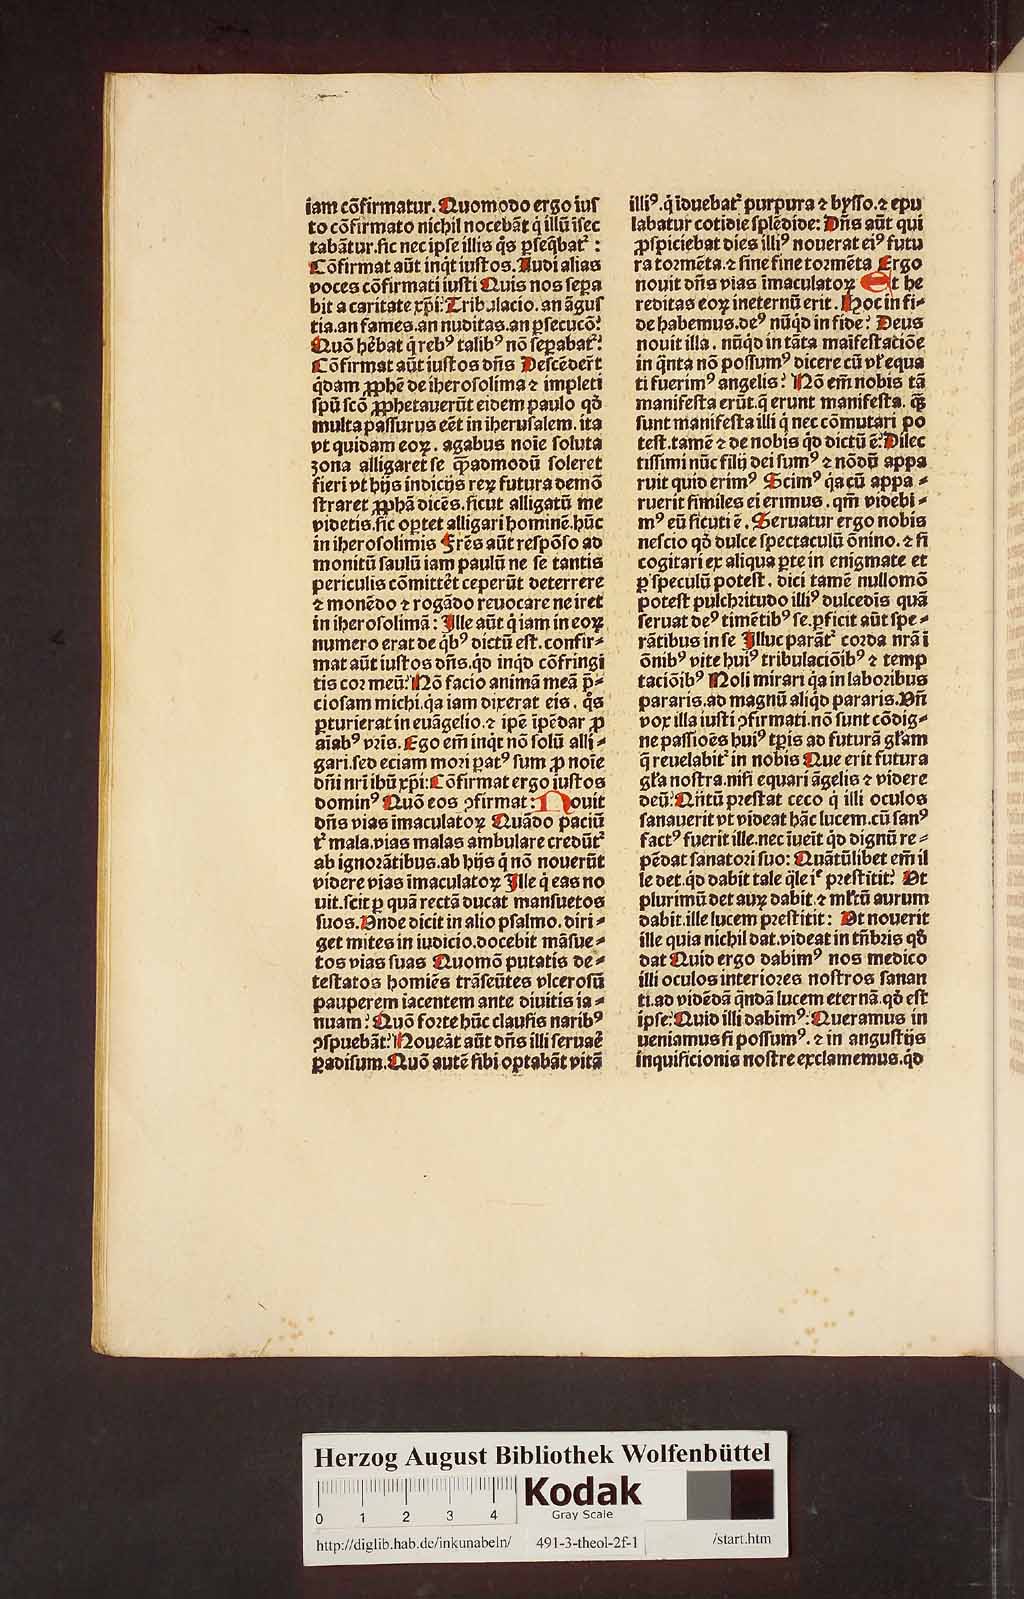 iam cōfirmatur. Quomodo ergo ius
to cōfirmato nichil nocebāt q̇ illū īsec
tabāntur. sic nec ipse illis q̇s ꝑseq̄bat᷑:
Cōfirmat aūt inq̇t iustos. Audi alias
voces cōfirmati iusti Quis nos sepa
bit a caritate xp̄i: Tribulacio. an āgus
tia. an fames. an nuditas. an ꝑsecucō:
Quō hēbat q̇ rebꝰ talibꝰ nō seꝑabat᷑:
Cōfirmat aūt iustos dn̄s Descēdert̄
q̇dam ꝓphē de iherosolima ⁊ impleti
spū scō ꝓphetauerūt eidem paulo qd̄
multa passurus eēt in iherusalem. ita
vt quidam eoꝝ. agabus noīe soluta
zona alligaret se q̄madmodū soleret
fieri vt hijs indicijs reꝝ futura demō
straret ꝓphā dicēs. sicut alligatū me
videtis. sic oꝑtet alligari hominē. hūc
in iherosolimis Frēs aūt respōso ad
monitū saulū iam paulū ne se tantis
periculis cōmittēt ceperūt deterrere
⁊ monēdo ⁊ rogādo reuocare ne iret
in iherosolimā: Ille aūt q̇ iam in eoꝝ
numero erat de q̇bꝰ dictū est. confir-
mat aūt iustos dn̄s. qd inqd cōfringi
tis cor meū: Nō facio animā meā p̄-
ciosam michi. qa iam dixerat eis. q̇s
ꝑturierat in euāgelio. ⁊ ip̄e īpēdar ꝓ
aīabꝰ vr̄is. Ego em̄ inq̇t nō solū alli-
gari. sed eciam mori ꝑatꝰ sum ꝓ noīe
dn̄i nr̄i ihū xp̄i: Cōfirmat ergo iustos
dominꝰ Quō eos ꝯfirmat: Nouit
dn̄s vias īmaculatoꝝ Quādo paciū
t᷑ mala. vias malas ambulare credūt᷑
ab ignorātibus. ab hijs q̇ nō nouerūt
videre vias īmaculatoꝝ Ille q̇ eas no
uit. scit ꝑ quā rectā ducat mansuetos
suos. Vnde dicit in alio psalmo. diri-
get mites in iudicio. docebit māsue-
tos vias suas Quomō putatis de-
testatos homiēs trāseūtes vlcerosū
pauperem iacentem ante diuitis ia-
nuam: Quō forte hūc clausis naribꝰ
ꝯspuebāt: Noueāt aūt dn̄s illi seruaē
ꝑadisum. Quō autē sibi oꝑtabāt vitā
illiꝰ. q̇ īduebat᷑ purpura ⁊ bysso. ⁊ epu
labatur cotidie splēdide: Dn̄s aūt qui
ꝓspiciebat dies illiꝰ nouerat eiꝰ futu
ra tormēta. ⁊ sine fine tormēta Ergo
nouit dn̄s vias īmaculatoꝝ Et he
reditas eoꝝ ineternū erit. Hoc in fi-
de habemus. deꝰ nūq̇d in fide: Deus
nouit illa. nūq̇d in tāta maīfestaciōe
in q̄nta nō possumꝰ dicere cū vl̄ equa
ti fuerimꝰ angelis: Nō em̄ nobis tā
manifesta erūt. q̄ erunt manifesta. q̄ꝫ
sunt manifesta illi q̇ nec cōmutari po
test. tamē ⁊ de nobis q̇d dictū ē: Dilec
tissimi nūc filij dei sumꝰ ⁊ nōdū appa
ruit quid erimꝰ Scimꝰ q̇a cū appa-
ruerit similes ei erimus. qm̄ videbi-
mꝰ eū sicuti ē. Seruatur ergo nobis
nescio qd̄ dulce spectaculū ōnino. ⁊ si
cogitari ex aliqua ꝑte in enigmate et
ꝑ speculū potest. dici tamē nullomō
potest pulchritudo illiꝰ dulcedis quā
seruat deꝰ timētibꝰ se. ꝑficit aūt spe-
rātibus in se Illuc parāt᷑ corda nr̄ā ī
ōnibꝰ vite huiꝰ tribulaciōibꝰ ⁊ temp
taciōibꝰ Noli mirari q̇a in laboribus
pararis. ad magnū aliq̇d pararis. Vn̄
vox illa iusti ꝯfirmati. nō sunt cōdig-
ne passioēs huiꝰ tp̄is ad futurā gl̄am
q̄ reuelabit᷑ in nobis Que erit futura
gl̄a nostra. nisi equari āgelis ⁊ videre
deū: Qn̄tū prestat ceco q̇ illi oculos
sanauerit vt videat hāc lucem. cū sanꝰ
factꝰ fuerit ille. nec īueit q̇d dignū re-
pēdat sanatori suo: Quātūlibet em̄ il
le det. q̇d dabit tale q̄le iᵉ prestitit: Vt
plurimū det auꝝ dabit. ⁊ ml̄tū aurum
dabit. ille lucem prestitit: Vt nouerit
ille quia nichil dat. videat in tn̄bris qd̄
dat Quid ergo dabimꝰ nos medico
illi oculos interiores nostros sanan
ti. ad vidēdā q̄ndā lucem eternā. qd̄ est
ipse: Quid illi dabimꝰ: Queramus in
ueniamus si possumꝰ. ⁊ in angustijs
inquisicionis nostre exclamemus. q̇d
Herzog August Bibliothek Wolfenbüttel
0 1 2 3 4
Kodak
Gray Scale
http://diglib.hab.de/inkunabeln/ 491-3-theol-2f-1 /start.htm